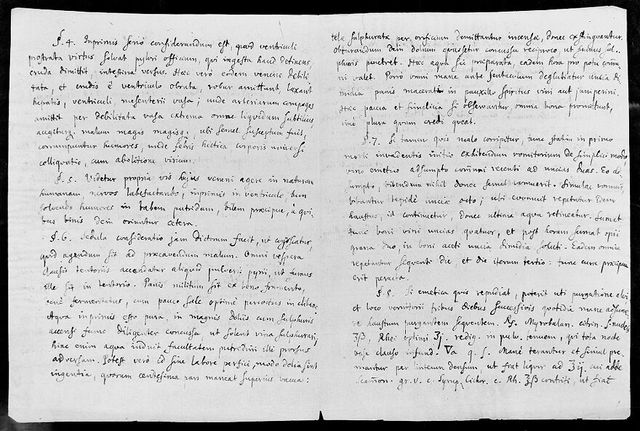 §. 4. Inprimis serio considerandum est, quod ventriculi
prostrata virtus solvat pylori officium, qui ingesta haud detinens,
cruda dimittit, intestina versus. Haec vero eodem veneris debili
tata, et crudis è ventriculo obruta, robur amittunt, laxant
lacteatis, ventriculi mesenterii vasa; unde arteriarum compages
amittit per debilitata vasa extrema omne liquidum subtilius
accepturi, malum magis magisq; ubi semel susceptum fuit,
corrumpuntur humores, unde febris hectica corporis
colliquatio, cum abolitione virium.
§. 5. Videtur propria vis hujus veneni agere in naturam
humanam nervos labefactando; inprimis in ventriculo, dein
solvendo humores in tabem putridam, bilem praecipue, à qui
bus binis dein oriuntur cetera.
§. 6. Sedula consideratio jam dictorum facit, ut
quid agendum sit ad praecavendum malum. Omni vespera
clausis tentoriis accendatur aliquid pulveris pyrii, ut fumus
ille sit in tentorio. Panis militum sit ex bono frumento,
bene fermentatus, cum pauco sale optime percoctus in
Aqua inprimis esto pura, in magnis doliis cum sulphuris
accensi fumo diligenter concussa ut solent vina sulphurari,
hinc enim aqua induit facultatem putredini illi prorsus
adversam. Potest vero id sine labore perfici, modo dolia sint
ingentia, quorum centesima pars maneat superius vacua:
tela sulphurata per orificium demittantur incensa, donec exstinguantur.
Obturandum dein dolium concussu reciproco, ut fumus sul-
phuris penetret. Haec aqua sic praeparata, eadem hora pro potu
ni valet. Porro omni mane ante jentaculum deglutiatur uncia di
midia panis macerati in pauxillo spiritus vini aut juniperini.
Haec pauca et simplicia si observantur omnia bona promittunt,
imo plura quam credi queat.
§. 7. Si tamen quis malo corripitur, tunc statim in primo
morbi invadentis initio exhibendum vomitorium de simplici modo
vino emetico adsumpto ad uncias duas. Eo as-
sumpto, bibendum nihil donec semel vomuerit. Simulac vomuit,
bibantur tepidi unciae octo; ubi evomuit repetatur idem
haustus, et continuetur, donec ultima aqua retineatur. Sumet
tunc boni vini uncias quatuor, et post horam sumat opii
grana duo, in vini aceti uncia dimidia soluti. Eadem omnia
repetantur sequenti die et die iterum tertio: tunc cura praecipua
erit peracta.
§. 8. Si emetica quis repudiat, poterit uti purgatione
et loco vomitorii tribus diebus successivis quotidie mane
re haustum purgantem sequentem. Rx. Myrobalan. citrin.
ʒß. Rhei optimi ʒj. redig. in pulv. tenuem, qui tota nocte
vase clauso infund. q. s. Mane terantur et simul
mantur per linteum densum, ut fiat liquor ad ℥ij. cui adde
gr. V. c. Rh. ℥ß contriti, ut fiat